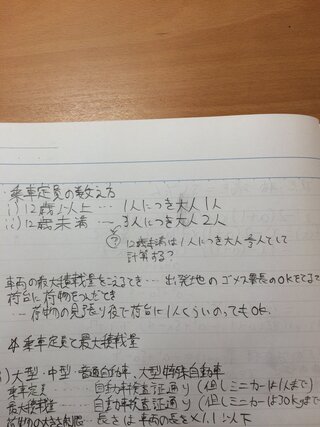 乗車定員の数え方
i) 12歳以上 … 1人につき大人1人
ii) 12歳未満 … 3人につき大人2人
? 12歳未満は1人につき大人 人として
計算する?
車両の最大積載量をこえるとき … 出発地の 署長のOKをもらって
荷台に荷物をつんだとき
… 荷物の見張り役で荷台に1人くらいのってもOK.
乗車定員と最大積載量
i) 大型・中型・普通自動車、大型特殊自動車
乗車定員 … 自動車検査証通り (但しミニカーは1人まで)
最大積載量 … 自動車検査証通り (但しミニカーは30kgまで
荷物の大きさ制限 … 長さは車両の長さ×1.1以下